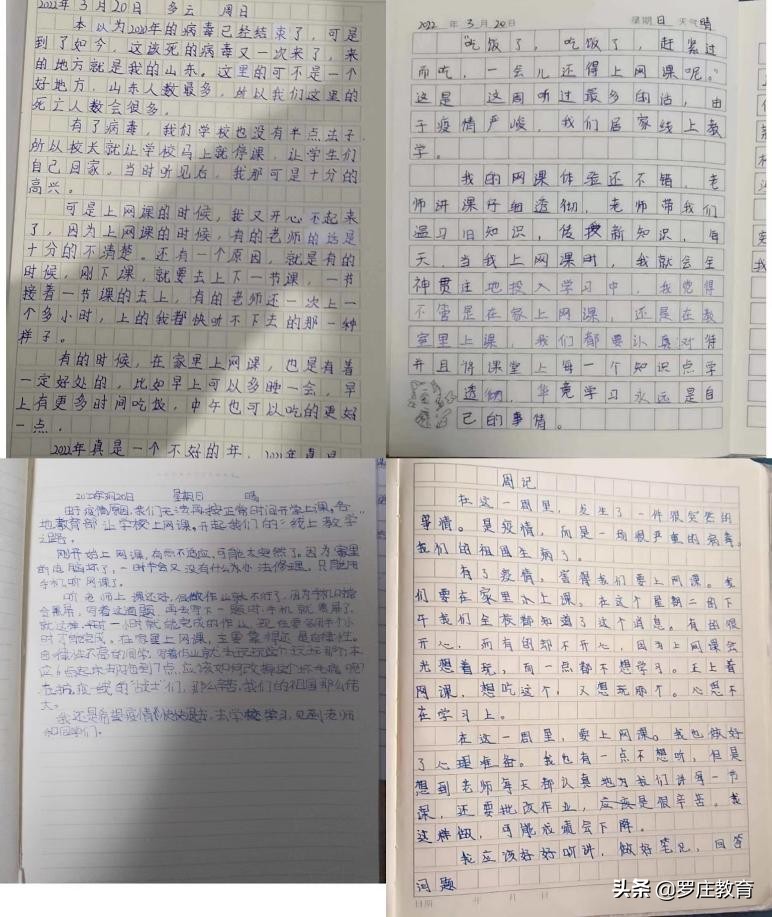 2022年3月20日 多云 周日
本以为2020年的病毒已经结束了，可是
到了如今，这该死的病毒又一次来了，来
的地方就是我的山东。这里的可不是一个
好地方，山东人数最多，所以我们这里的
死亡人数会很多。
有了病毒，我们学校也没有半点法子，
所以校长就让学校马上就停课，让学生们
自己回家，当时听见后，我那可是十分的
高兴。
可是上网课的时候，我又开心不起来
了，因为上网课的时候，有的老师的话是
十分的不清楚。还有一个原因，就是有的
时候，刚下课，就要去上下一节课，一节
接着一节课的去上，有的老师还一次上一
个多小时，上的我都快听不下去的那一种
样子。
有的时候，在家里上网课，也是有着
一定好处的，比如早上可以多睡一会，早
上有更多时间吃饭，中午也可以吃的更好
一点。
2022年真是一个不好的年，
2022年3月20日 星期日 天气晴
“吃饭了，吃饭了，赶紧过
而吃，一会儿还得上网课呢。”
这是 这周听过最多的话，由
于疫情严峻，我们居家线上教
学。
我的网课体验还不错，老
师讲课仔细透彻，老师带我们
温习旧知识，传授新知识，每
天，当我上网课时，我就会全
神贯注地投入学习中，我觉得
不管是在家上网课，还是在教
室里上课，我们都要认真对待
并且将课堂上每一个知识点学
透彻，毕竟学习永远是自
己的事情。
2022年3月20日 星期日 晴
由于疫情原因，我们无法再按正常时间开学上课。各
地教育部让学校上网课。开起我们的“线上教学
之路”。
刚开始上网课，有些不适应，可能太突然了。因为家里
的电脑坏了，一时半会又没有什么办法修理，只能用
手机听网课了。
听老师上课还好，但做作业就不行了，因为手机时常
会黑屏，写着这道题，再去写下一题时，手机就黑屏了，
就这样一小时就能完成的作业，现在要多用半个小
时才能完成。在家里上网课，主要靠得还是自律性。
我还是希望疫情快快退去，去学校学习，见到老师
和同学们。
周记
在这一周里，发生了一件很突然的
事情。是疫情，而是一场很严重的病毒，
我们的祖国生病了。
有了疫情，害得我们要上网课。我
们要在家里水上课，在这个星期二的下
午我们全校都知道了这个消息。有的很
开心，而有的却不开心，因为上网课会
光想着玩，而一点都不想学习。王上着
网课，想吃这个，又想玩那个。心思不
在学习上。
在这一周里，要上网课。我也做好
了心理准备。我也有一点不想听，但是
想到老师每天都认真地为我们讲每一节
课，还要批改作业，应该是很辛苦。我
这样做，可能成绩会下降。
我应该好好听讲，做好笔记，回答
问题
日期 年 月 日
头条 @罗庄教育